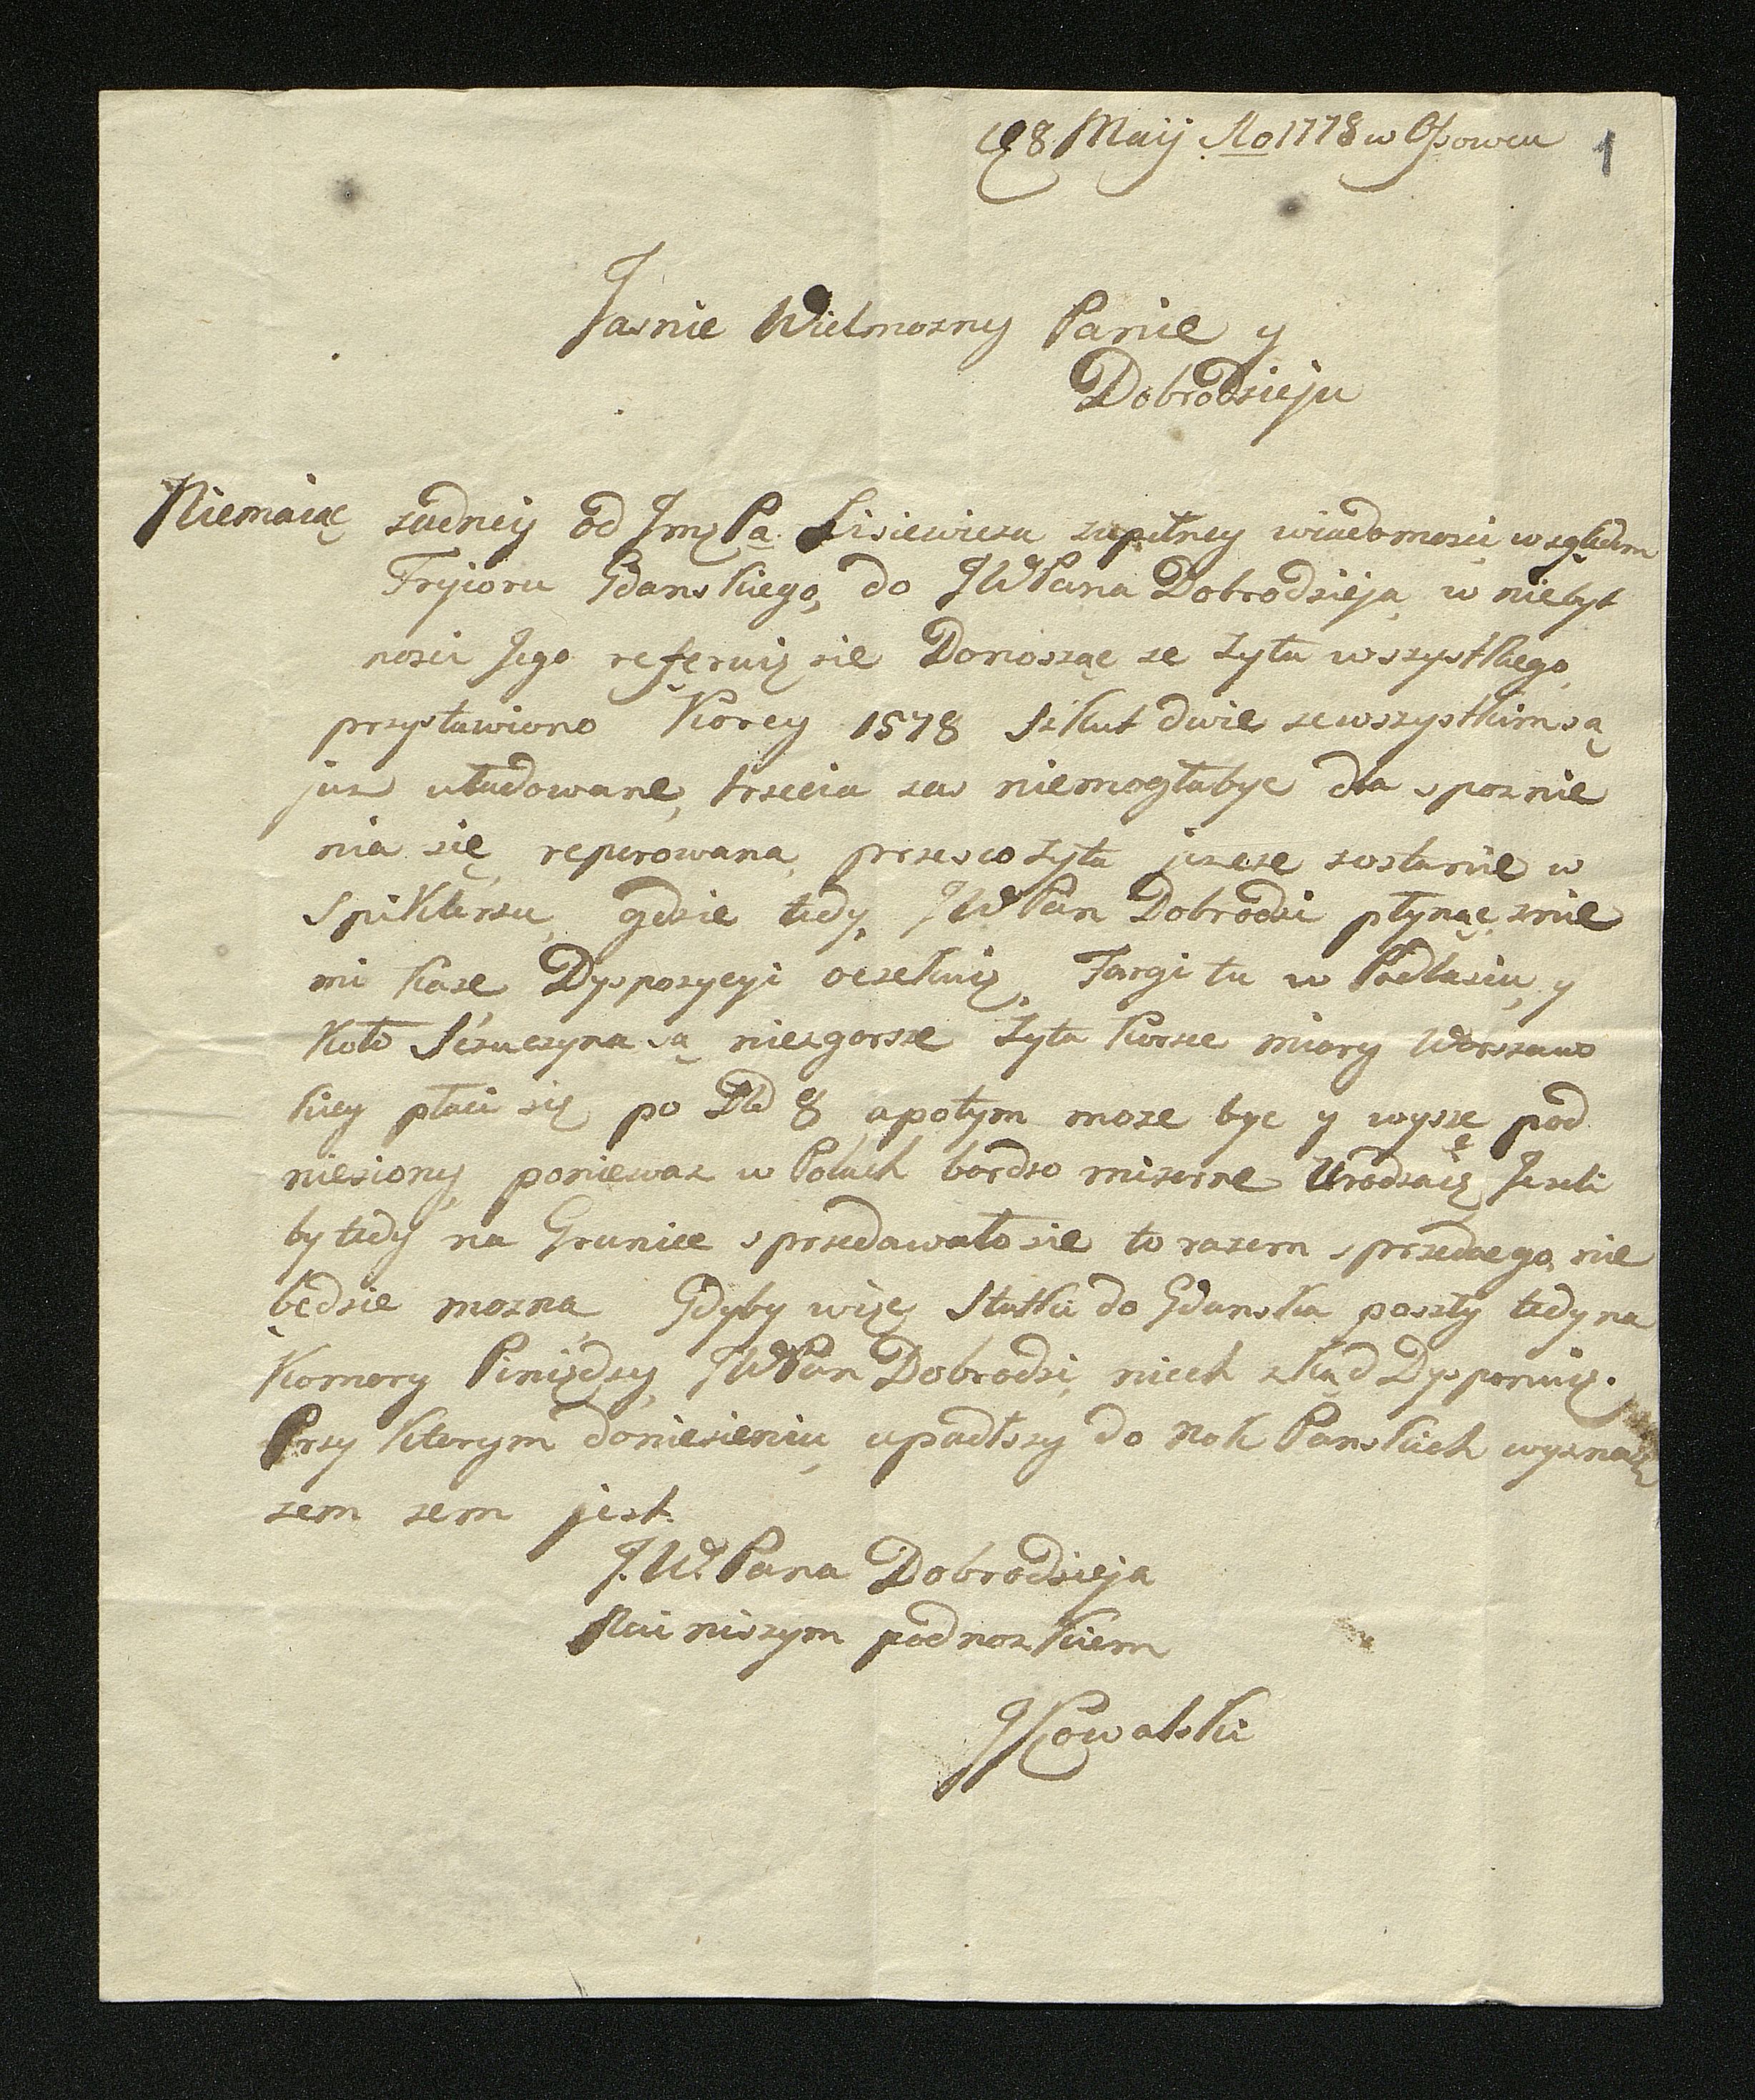 8 Maij Ao 1778 w Ossowcu 1
Jasnie Wielmozny Panie y
Dobrodzieju
Niemaiąc zadney od Jmę Pa. Lisiewicza zupełney wiadomosci względem
Fryioru Gdanskiego, do JWPana Dobrodzieja w niebyt
nosci Jego referuię sie Donosząc ze zyta wszystkiego
przystawiono Korcy 1578 Szkut dwie zewszystkim są
juz uładowane, trzecia zas niemogłabyc dla spoznie
nia się reperowana, przezco zyta jeszcze zostanie w
Spiklerzu, gdzie tedy JWPan Dobrodzi płynąc znie
mi kaze Dyspozycyi oczekuię. Targi tu w Podlasiu y
Koło Sczuczyna są niezgorsze zyta Korzec miary Warszaws
kiey płaci się po 8 apotym moze byc y wysze pod
niesiony, poniewaz w Polach bardzo mizerne Urodzaię Jezeli
by tedy na Granice sprzedawało sie to razem sprzedac go nie
będzie mozna Gdyby więc Statki do Gdanska poszły tedy na
Komory Piniędzy JWPan Dobrodzi, niech zkąd Dysponuię.
Przy ktorym doniesieniu upadłszy do Nok Panskich wyznaię
zem zem jest.
J.W.Pana Dobrodzieja
Nainiszym podnozkiem
JKowalski